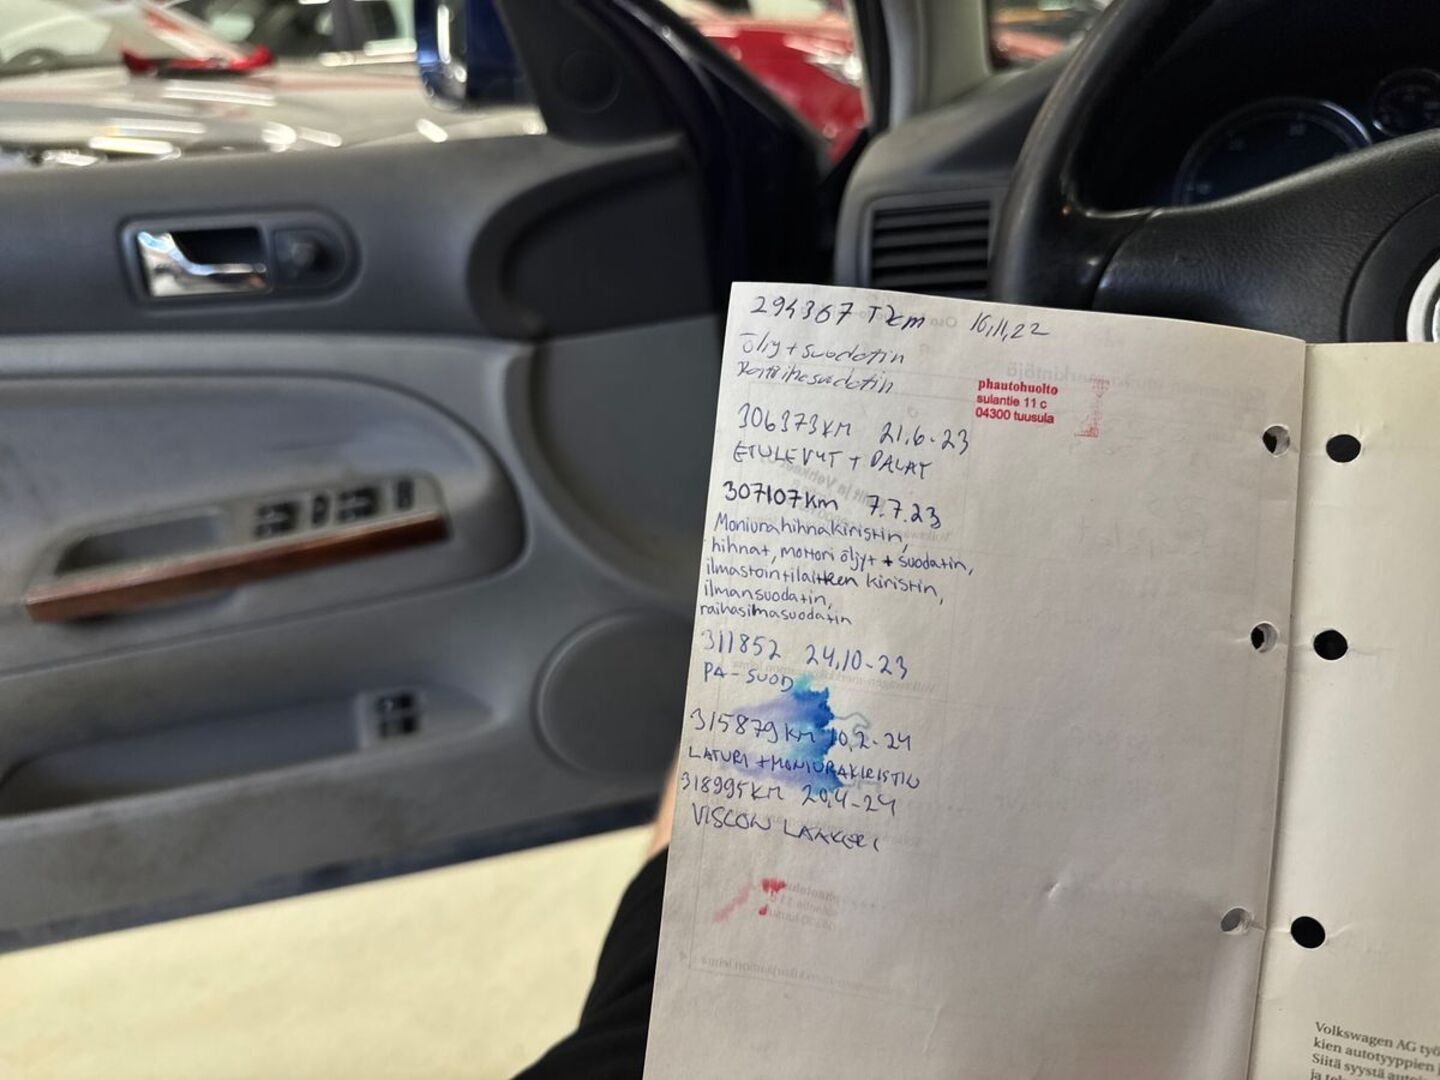 294367 Tkm 16,11,22
Öljy + suodatin
Raitisilmasuodatin
phautohuolto
sulantie 11 c
04300 tuusula
306373KM 21.6-23
ETULEVYT + PALAT
307107Km 7.7.23
Moniurahihnakiristin,
hihnat, mottori öljyt + suodatin,
ilmastointilaitteen kiristin,
ilmansuodatin,
raihasilmasuodatin
311852 24,10-23
PA-SUOD
315879KM 10,2-24
LATURI + MONIURAKIRISTIN
318995KM 20,4-24
VISCON LAAKERI
Volkswagen AG työ
kien autotyyppien j
Siitä syystä
ja